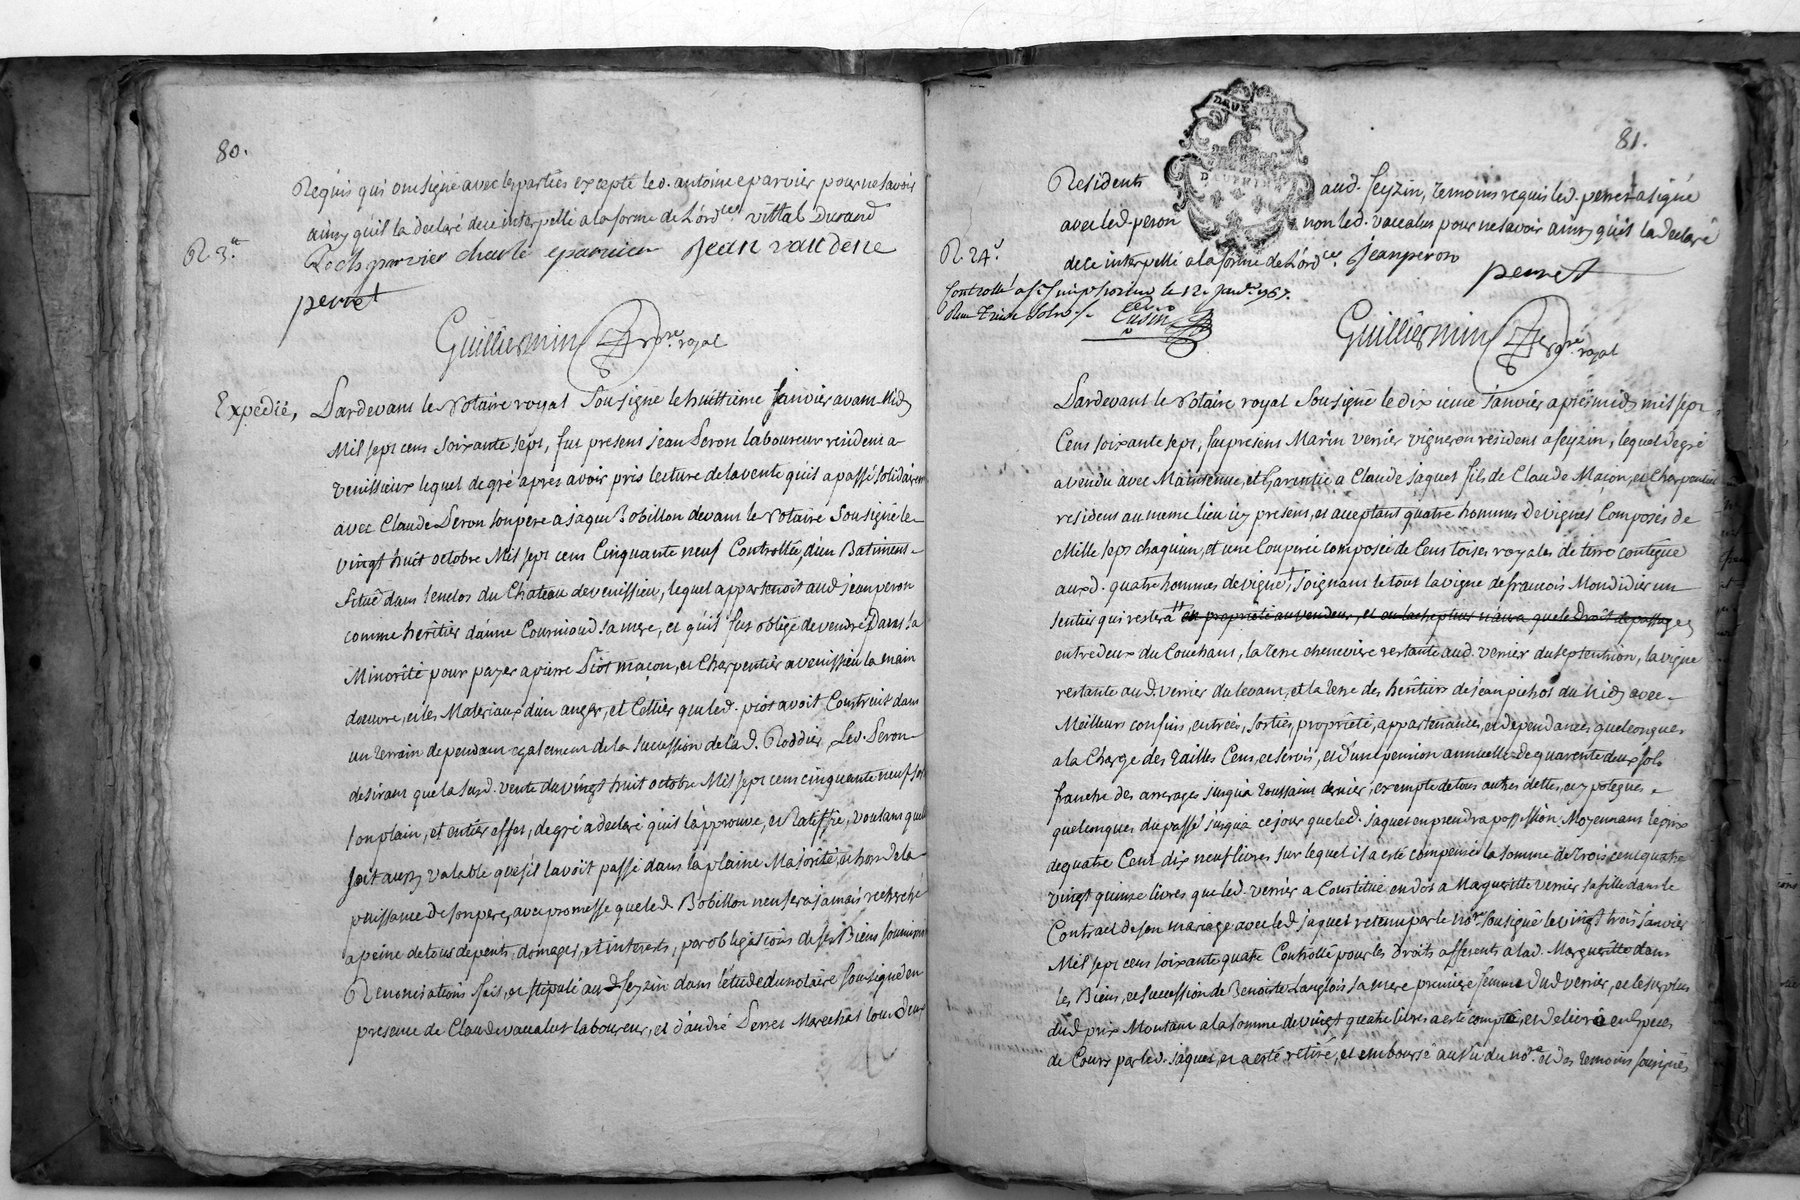 80.
Requis qui ont signé avec les parties excepté led. antoine eparvier pour ne savoir
ainsy qu'il la declaré de ce interpellé a la forme de L'ordce. vittal Durand
R. 3.tt
eparvier charle eparvier Jean vaudene
perret
Guilliermin nore. royal
Expédié,
Pardevant le Notaire royal Sousigné le huittieme Janvier avant Midy
Mil sept cent Soixante sept, fut present jean Peron laboureur resident a
venissieux lequel de gré après avoir pris lecture de la vente qu'il a passé solidairemt
avec Claude Peron son pere a jaque Bobillon devant le Notaire Sousigné le
vingt huit octobre Mil sept cent Cinquante neuf Controllée, d'un Batiment
situé dans l'enclos du Chateau de venissieu, lequel appartenoit aud. jean peron
comme heritier d'anne Cournioud sa mere, et qu'il fut obligé de vendre Dans la
Minorité pour payer a pierre Piot maçon, et Charpentier a venissieu la main
d'oeuvre, et les Materiaux d'un anger, et Cellier que led. piot avoit Construit dans
un terrein dependant egalement de la sucession de lad. Roddier, Led. Peron
desirant que la susd. vente du vingt huit octobre Mil sept cent cinquante neuf sorte
son plain, et entier effet, de gré a declaré qu'il l'approuve, et Ratiffie, voulant quelle
soit aussy valable que s'il l'avoit passé dans la plaine Majorité, et hors de la
puissance de son pere, avec promesse que led. Bobillon n'en sera jamais recherché
a peine de tous depents, domages, et interets, par obligations de ses Biens soumissions
Renonciations fait, et stipulé aud. feyzin dans l'étude du notaire sousigné en
presence de Claude vacalut laboureur, et d'andré Perret Marechal tous deux
81.
Residents aud. feyzin, temoins requis led. perret a signé
avec led. peron non led. vacalut pour ne savoir ainsy qu'il la declaré
de ce interpellé a la forme de L'ordce. Jean peron
perret
R. 24s.
Controllé a st simphorien le 12e. janvr. 1767.
Reçu treize sols
Guilliermin nore. royal
Pardevant le Notaire royal Sousigné le dixieme Janvier après midy mil sept
Cent soixante sept, fut present Marin verrier vigneron resident a feyzin, lequel de gré
a vendu avec Maintenue, et Garentie a Claude jaquet fils de Claude Maçon, et Charpentier
resident au meme lieu icy present, et acceptant quatre hommes de vignes Composés de
Mille seps chaquun, et une Couperée composée de Cent toises royales de terre contigue
auxd. quatre hommes de vigne, joignant le tout la vigne de francois Mondidier un
sentier qui restera en propriété au vendeur, et ou lacheptteur n'aura que le Droit de passage
entredeux du Couchant, la terre cheneviere restante aud. verrier du septentrion, la vigne
restante aud. verrier du levant, et la terre des heritiers de jean pichot du midy avec
Meilleurs confins, entrées, sorties, propriété, appartenances, et dependances quelconques
a la Charge des tailles Cens, et servis, et d'une pension annuelle de quarente deux sols
franche des arrerages jusqu'a toussaint dernier, exempte de tous autres dettes, et ypoteques
quelconques du passé jusqu'a ce jour que led. jaquet en prendra possession Moyennant le prix
de quatre Cent dix neuf livres sur lequel il a esté compensé la somme de trois cent quatre
vingt quinze livres que led. verrier a Constitué en dot a Marguerite verrier sa fille dans le
Contract de son mariage avec led. jaquet retenu par le nore. sousigné le vingt trois janvier
Mil sept cent soixante quatre Controllé pour les Droits afferents a lad. Marguerite dans
les Biens, et succession de Benoiste Langlois sa mere premiere femme dud. verrier, et le surplus
dud. prix Montant a la somme de vingt quatre livres a esté compté, et delivré en Especes
de Cours par led. jaquet, et a esté retiré, et emboursé au vû du nore. et des temoins sousignés